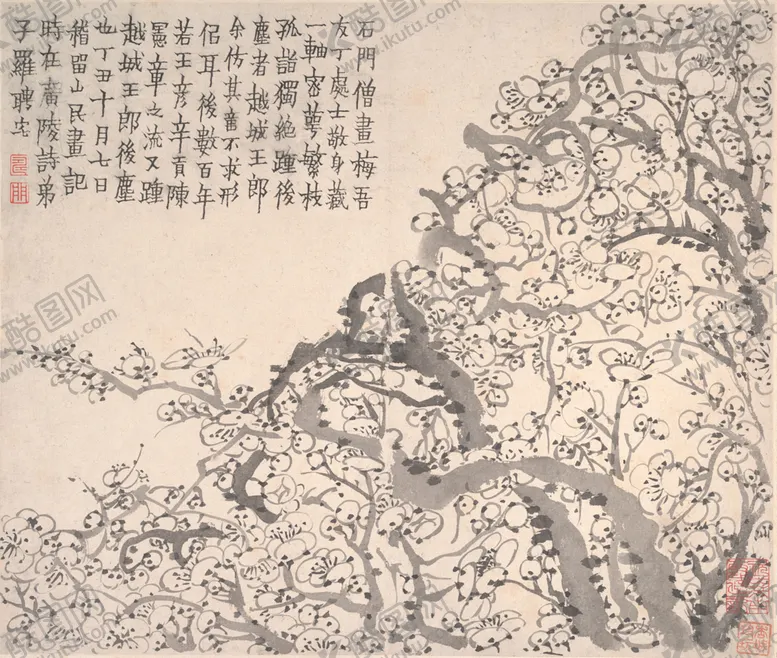 石門僧畫梅吾
友丁處士敬身藏
一軸密萼繁枝
孤詣獨絕踵後
塵者越城王郎
余仿其意不求形
侶耳後數百年
若王彥辛貢陳
憲章之流又踵
越城王郎後塵
也丁丑十月七日
稽留山民畫記
時在廣陵詩弟
子羅聘定
酷图网
www.ikutu.com